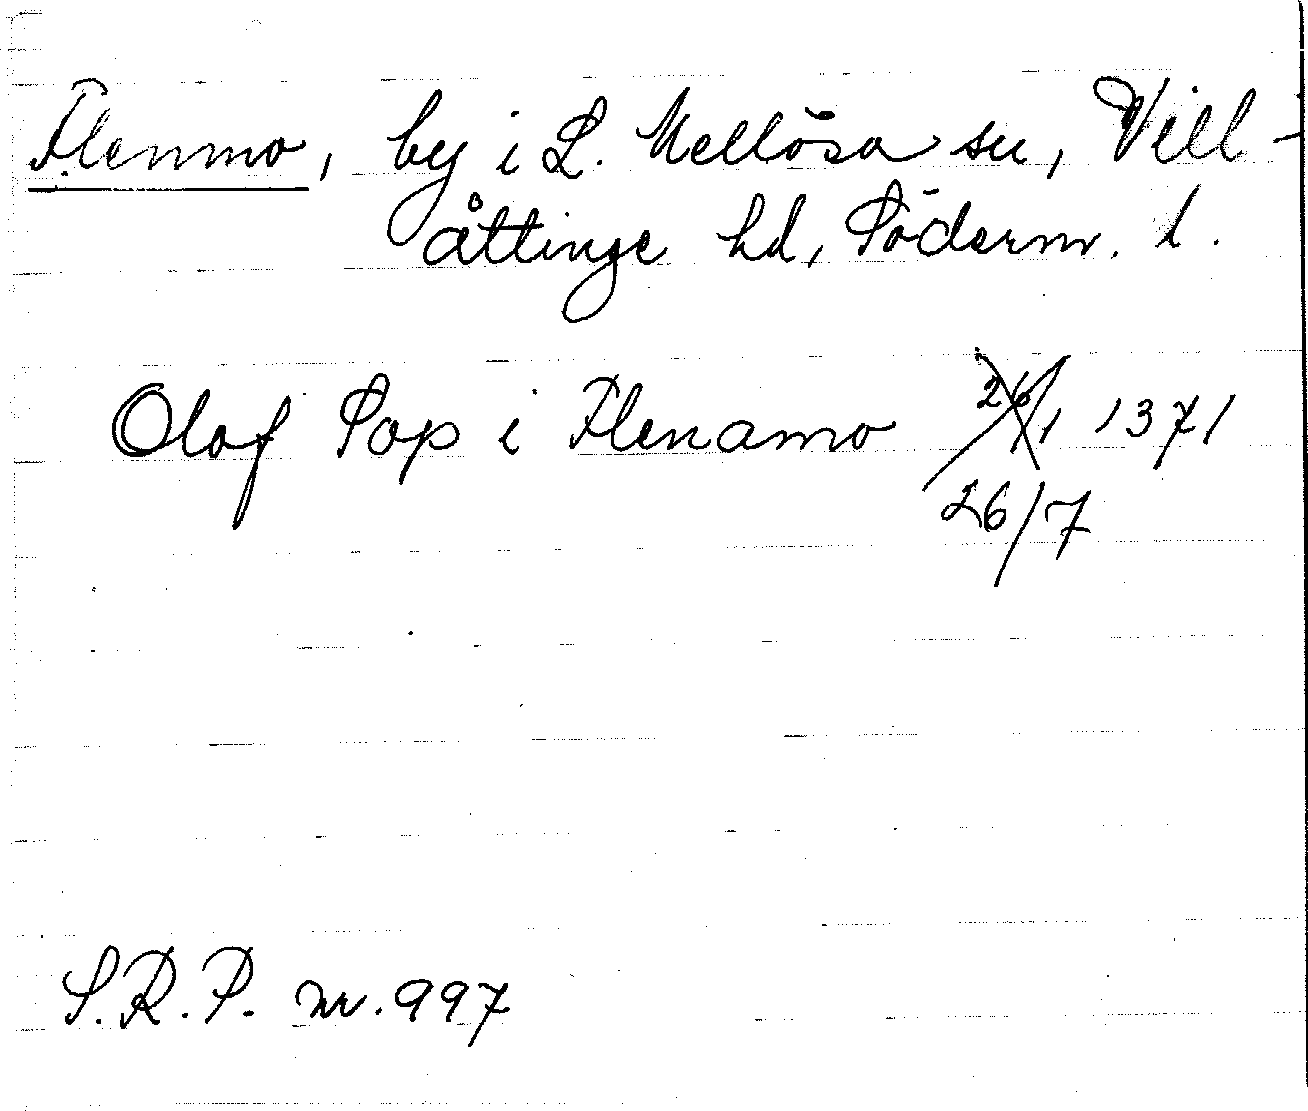 Flenmo, by i L. Mellösa sn, Vill-
åttinge hd, Söderm. l.
Olof Pop i Flenamo 26/1 1371
26/7
S.R.P. nr. 997